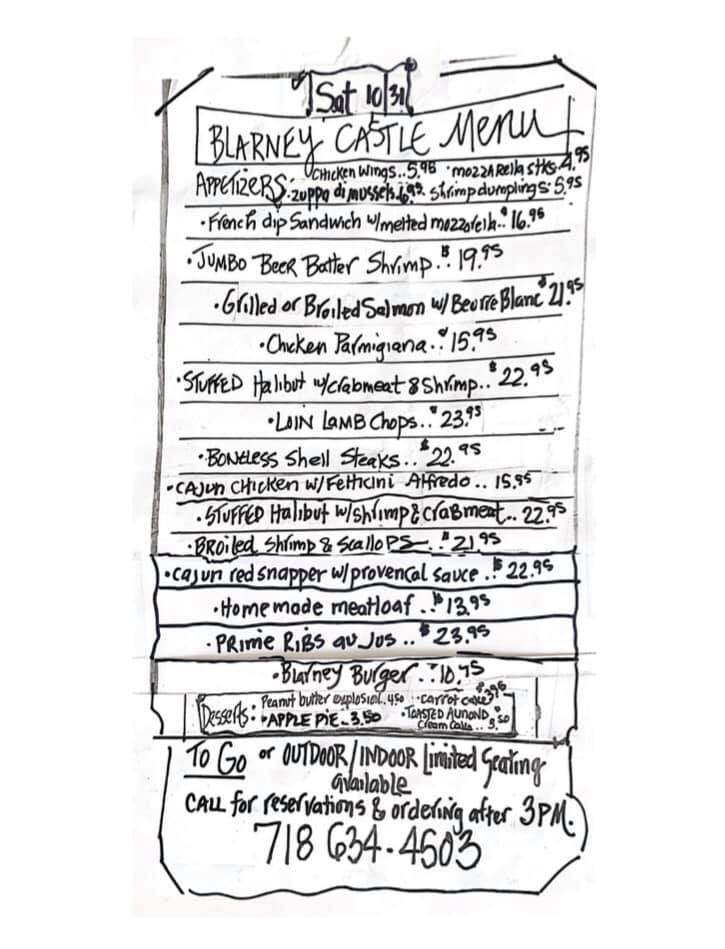 Sat 10/31
BLARNEY CASTLE Menu
APPETIZERS: CHICKEN WINGS..5.95 · MOZZARella stks. 4.95
· zuppa di mussels. 6.95. Shrimp dumplings: 5.95
· French dip Sandwich w/melted mozzarella. $16.95
· JUMBO Beer Batter Shrimp. $19.95
· Grilled or Broiled Salmon w/ Beurre Blanc $21.95
· Chicken Parmigiana. $15.95
· STUFFED Halibut w/crabmeat & Shrimp.. $22.95
· LOIN LAMB Chops.. $23.95
· BONELESS Shell Steaks.. $22.95
· CAJUN CHICKEN w/ Fetticini Alfredo.. 15.95
· STUFFED Halibut w/shrimp & crabmeat.. 22.95
· BROiled Shrimp & Scallops.. $21.95
· Cajun red snapper w/ provencal sauce.. $22.95
· Homemade meatloaf.. $13.95
· PRime RIBS au Jus.. $23.95
· Blarney Burger.. 10.75
Desserts: Peanut butter explosion..450 · carrot cake $3.95
· APPLE PIE.. 3.50 · TOASTED ALMOND
Cream Cake.. 3.50
To Go or OUTDOOR/INDOOR Limited Seating
available
CALL for reservations & ordering after 3PM.
718 634-4503